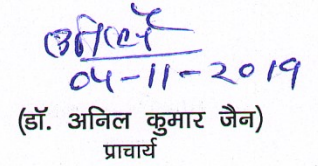 अनिल
04-11-2019
(डॉ. अनिल कुमार जैन)
प्राचार्य